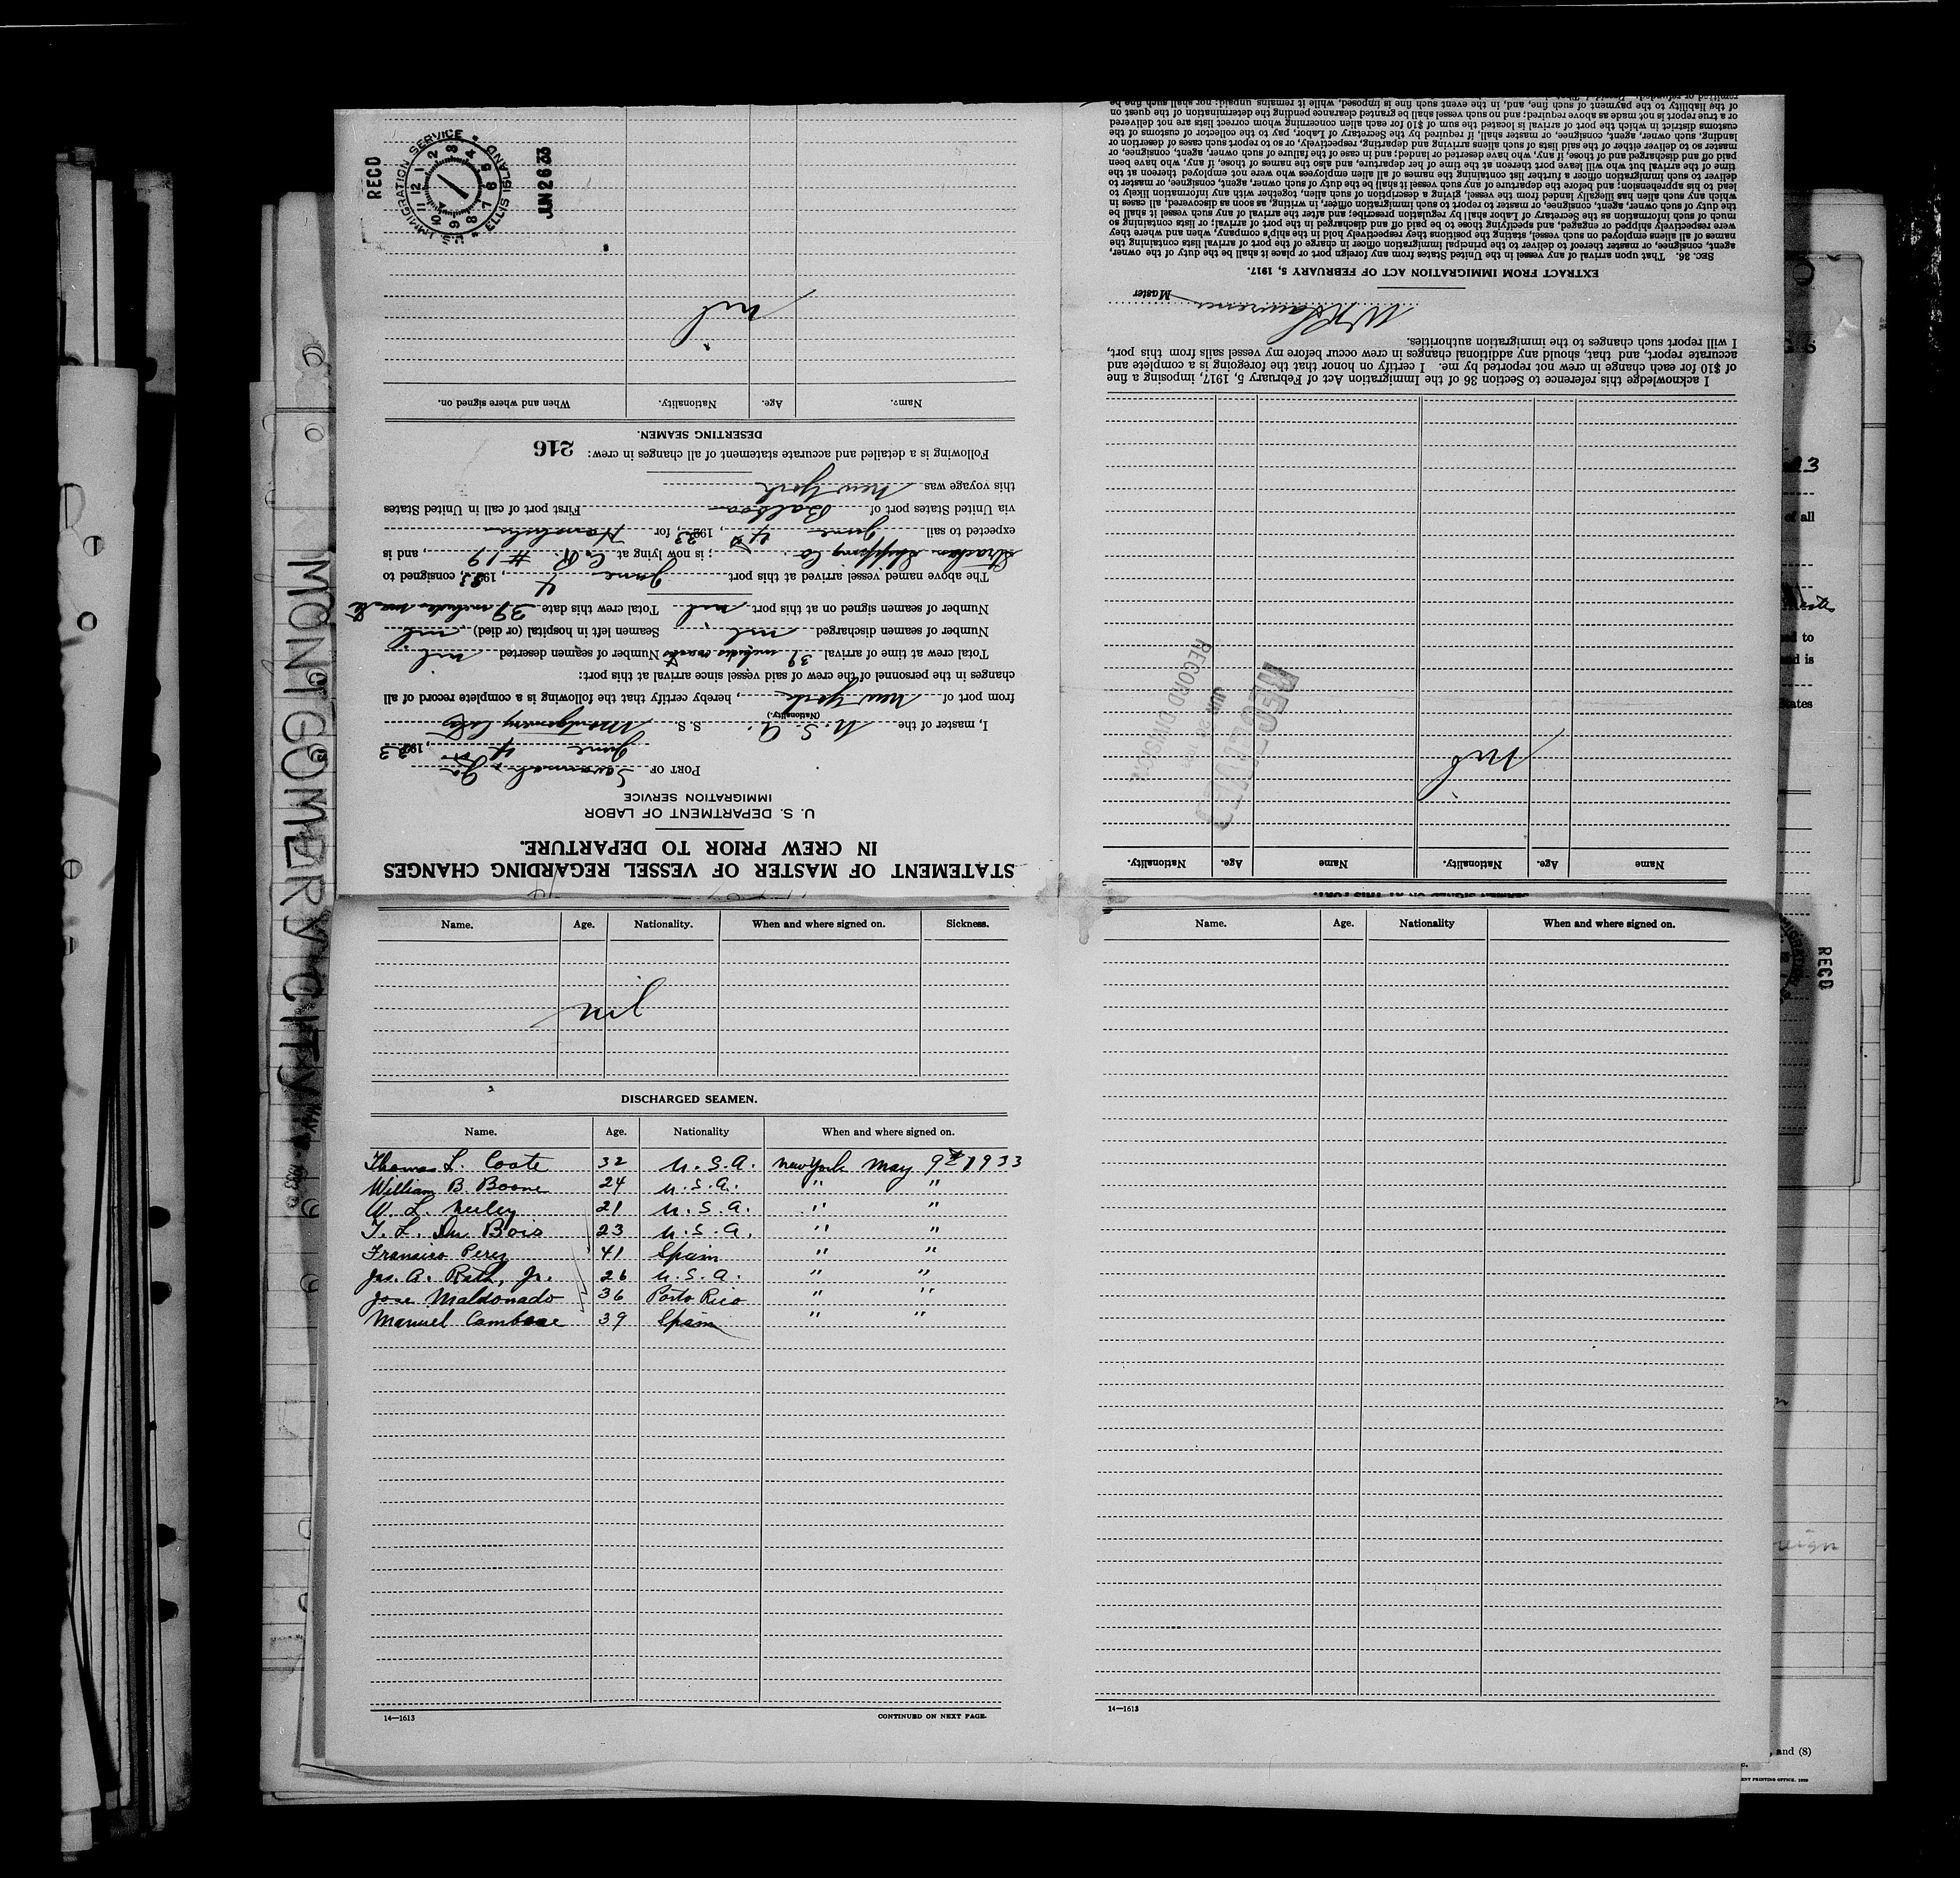 STATEMENT OF MASTER OF VESSEL REGARDING CHANGES
IN CREW PRIOR TO DEPARTURE.
U. S. DEPARTMENT OF LABOR
IMMIGRATION SERVICE
PORT OF Savannah, Ga
June 4, 1933
I, master of the U. S. A. S. S. Montgomery City
(Nationality.)
from port of New York, hereby certify that the following is a complete record of all
changes in the personnel of the crew of said vessel since arrival at this port:
Total crew at time of arrival 39 includes master Number of seamen deserted nil
Number of seamen discharged nil Seamen left in hospital (or died) nil
Number of seamen signed on at this port nil Total crew this date 39 includes
The above named vessel arrived at this port June 4, 1933, consigned to
Strachan Shipping Co.; is now lying at #19, and is
expected to sail June 4, 1933, for Honolulu
via United States port of Balboa First port of call in United States
this voyage was New York
Following is a detailed and accurate statement of all changes in crew: 216
DESERTING SEAMEN.
Name. Age. Nationality. When and where signed on.
nil
RECD
U.S. IMMIGRATION SERVICE
ELLIS ISLAND
JUN 26 33
Name Age. Nationality. Name Age. Nationality.
Nil
RECEIVED
RECORD DIVISION
I acknowledge this reference to Section 36 of the Immigration Act of February 5, 1917, imposing a fine
of $10 for each change in crew not reported by me. I certify on honor that the foregoing is a complete and
accurate report, and that, should any additional changes in crew occur before my vessel sails from this port,
I will report such changes to the immigration authorities.
Master
EXTRACT FROM IMMIGRATION ACT OF FEBRUARY 5, 1917.
SEC. 36. That upon arrival of any vessel in the United States from any foreign port or place it shall be the duty of the owner,
agent, consignee, or master thereof to deliver to the principal immigration officer in charge of the port of arrival lists containing the
names of all aliens employed on such vessel, stating the positions they respectively hold in the ship's company, when and where they
were respectively shipped or engaged, and specifying those to be paid off and discharged in the port of arrival; or lists containing so
much of such information as the Secretary of Labor shall by regulation prescribe; and after the arrival of any such vessel it shall be
the duty of such owner, agent, consignee, or master to report to such immigration officer, in writing, as soon as discovered, all cases in
which any such alien has illegally landed from the vessel, giving a description of such alien, together with any information likely to
lead to his apprehension; and before the departure of any such vessel it shall be the duty of such owner, agent, consignee, or master to
deliver to such immigration officer a further list containing the names of all alien employees who were not employed thereon at the
time of the arrival but who will leave port thereon at the time of her departure, and also the names of those, if any, who have been
paid off and discharged and of those, if any, who have deserted or landed; and in case of the failure of such owner, agent, consignee, or
master so to deliver either of the said lists of such aliens arriving and departing, respectively, or so to report such cases of desertion or
landing, such owner, agent, consignee, or master shall, if required by the Secretary of Labor, pay to the collector of customs of the
customs district in which the port of arrival is located the sum of $10 for each alien concerning whom correct lists are not delivered
or a true report is not made as above required; and no such vessel shall be granted clearance pending the determination of the quest on
of the liability to the payment of such fine, and, in the event such fine is imposed, while it remains unpaid; nor shall such fine be
Name. Age. Nationality. When and where signed on. Sickness.
nil
DISCHARGED SEAMEN.
Name. Age. Nationality When and where signed on.
Thomas L. Coate 32 U. S. A. New York May 9th 1933
William B. Boone 24 U. S. A. " "
W. L. Neeley 21 U. S. A. " "
T. L. Du Bois 23 U. S. A. " "
Fransico Perez 41 Spain " "
Jas. A. Rath, Jr. 26 U. S. A. " "
Jose Maldonado 36 Porto Rico " "
Manuel 39 Spain " "
14—1613 CONTINUED ON NEXT PAGE.
Name. Age. Nationality When and where signed on.
14—1613
MONTGOMERY CITY
of all
RECD
and (8)